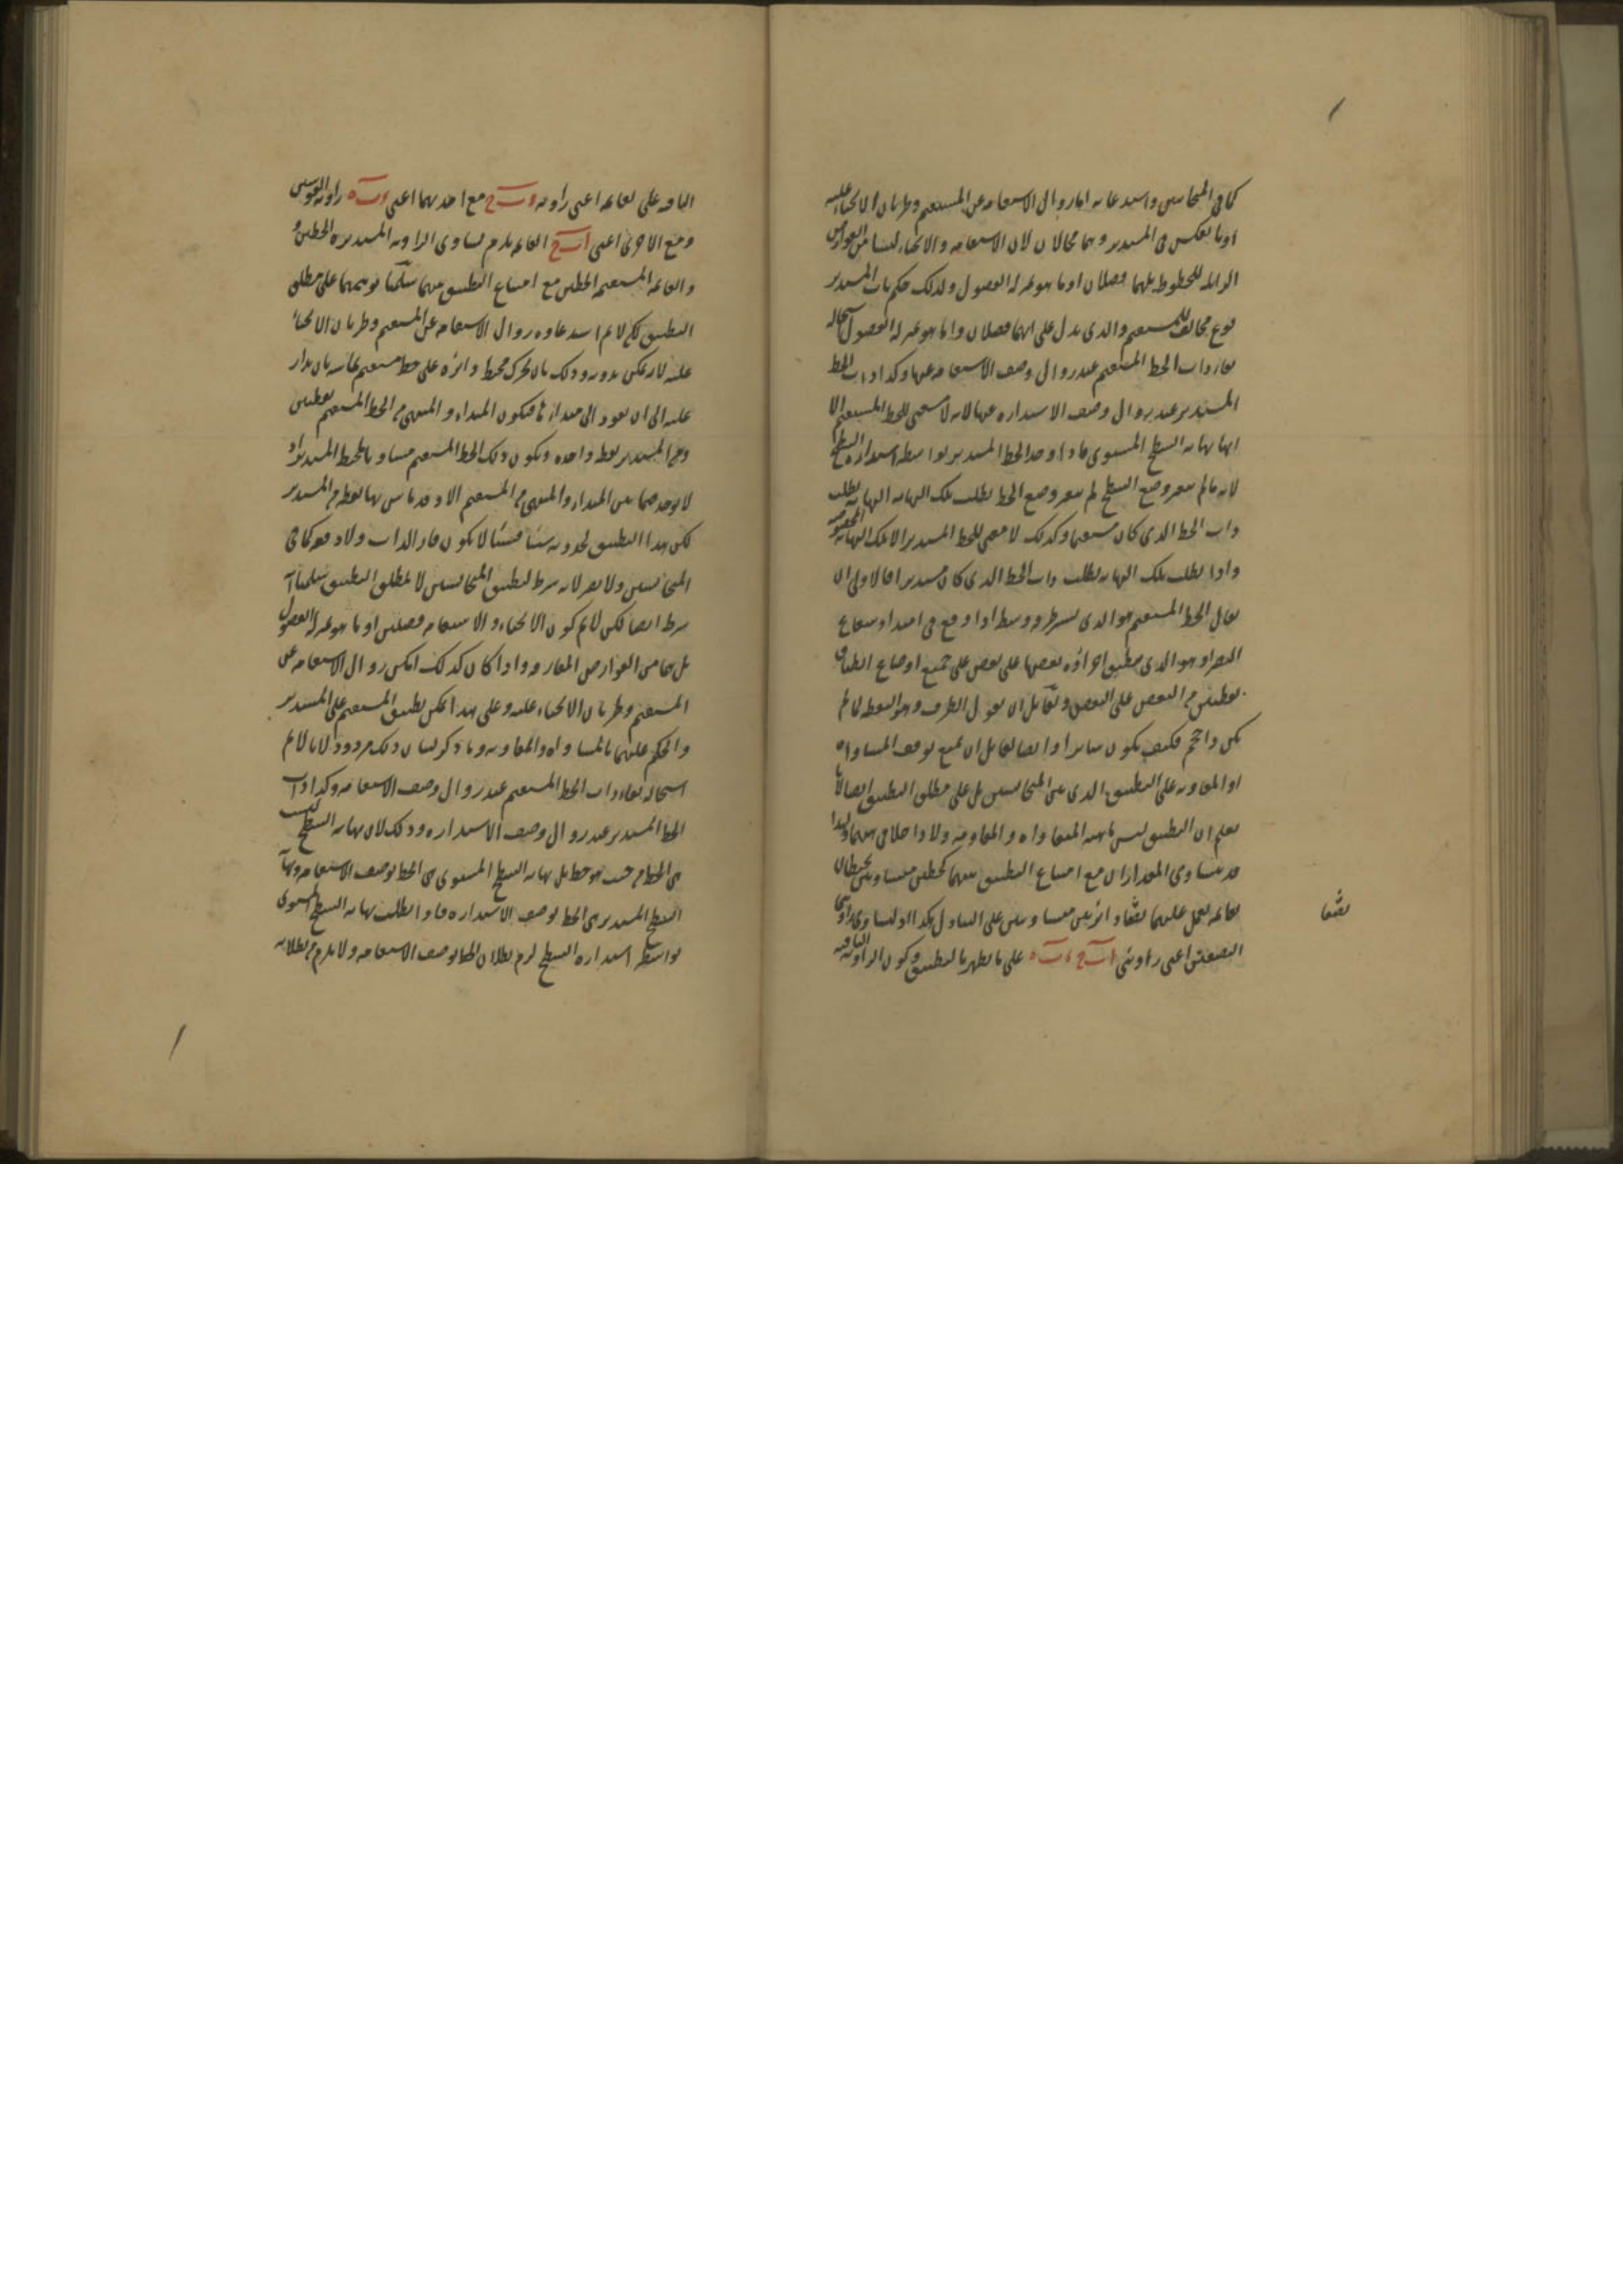 كما في المتجانسين واستدعائه اما زوال الاستقامة عن المستقيم وطريان الانحناء عليه
او بالعكس في المستدير وهما محالان لان الاستقامة والانحناء ليسا من العوارض
الزايلة للخطوط بل هما فصلان او ما هو كمنزلة الفصول ولذلك حكم بان المستدير
نوع مخالف للمستقيم والذي يدل على انهما فصلان واما هو كمنزلة الفصول استحالة
بقاء ذات الخط المستقيم عند زوال وصف الاستقامة عنها وكذا ذات الخط
المستدير عند زوال وصف الاستدارة عنها لانه لا معنى للخط المستقيم الا
انها نهاية السطح المستوى فاذا وجد الخط المستدير بواسطة استدارة السطح
لانه ما لم يتغير وضع السطح لم يتغير وضع الخط بطلت تلك النهاية
ذات الخط الذي كان مستقيما وكذلك لا معنى للخط المستدير الا تلك النهاية
واذا بطلت تلك النهاية بطلت ذات الخط الذي كان مستديرا فالاولى ان
يقال الخط المستقيم هو الذي يستر طرفه وسطه اذا وقع في امتداد شعاع
البصر او هو الذي ينطبق اجزاؤه بعضها على بعض على جميع اوضاع انطباق
البعض على البعض ولقائل ان يقول الطرف وهو النقطة لما لم
يكن ذا حجم فكيف يكون ساترا وايضا لقائل ان يمنع توقف المساواة
او المفاوتة على التطبيق الذي بين المتجانسين بل على مطلق التطبيق ايضا لانا
نعلم ان التطبيق ليس ماهية المساواة والمفاوتة ولا داخلا في ولهذا
قد يتساوى المقداران مع امتناع التطبيق بينهما كخطين متساويين يحيطان
بقائمة نعمل عليهما نصفا دائرتين متساويتين على التبادل هكذا لتساوي زاويتي
النصفين اعني زاويتي ا ب ح ء ب ه على ما يظهر بالتطبيق وكون الزاوية الباقية
نصفا
الباقية على القائمة اعني زاوية ء ب ح مع احديهما اعني ء ب ه زاوية القوسين
ومع الاخرى اعني ا ب ح القائمة يلزم تساوي الزاوية المستديرة الخطين
والقائمة المستقيمة الخطين مع امتناع التطبيق بينهما سلمنا توقفهما على مطلق
التطبيق لكن لا نم استدعاءه زوال الاستقامة عن المستقيم وطريان الانحناء
عليه لانه يمكن بدونه وذلك بان يحرك محيط دائرة على خط مستقيم يماسه بان يدار
عليه الى ان يعود الى مبدائه فيكون المبداء والمنتهى من الخط المستقيم نقطتين
ومن المستدير نقطة واحدة ويكون ذلك الخط المستقيم مساويا لمحيط المستدير اذ
لا يوجد فيما بين المبداء والمنتهى من المستقيم الا وقد ماس بها نقطة من المستدير
لكن هذا التطبيق لحدوثه شيئا فشيئا لا يكون قار الذات ولا دفعة كما في
المتجانسين ولا يضر لانه شرط لتطبيق المتجانسين لا لمطلق التطبيق سلمنا انه
شرط ايضا لكن لا نم كون الانحناء والاستقامة فصلين او ما هو كمنزلة الفصول
بل هما من العوارض المفارقة واذا كان كذلك امكن زوال الاستقامة عن
المستقيم وطريان الانحناء عليه وعلى هذا يمكن تطبيق المستقيم على المستدير
والحكم عليهما بالمساواة والمفاوتة وما ذكر لبيان ذلك مردود لانا لا نم
استحالة بقاء ذات الخط المستقيم عند زوال وصف الاستقامة وكذا ذات
الخط المستدير عند زوال وصف الاستدارة وذلك لان نهاية السطح ليست
هي الخط من حيث هو خط بل نهاية السطح المستوى هي الخط بوصف الاستقامة ونهاية
السطح المستدير هي الخط بوصف الاستدارة فاذا بطلت نهاية السطح المستوى
بواسطة استدارة السطح لزم بطلان الخط بوصف الاستقامة ولا يلزم من بطلانه